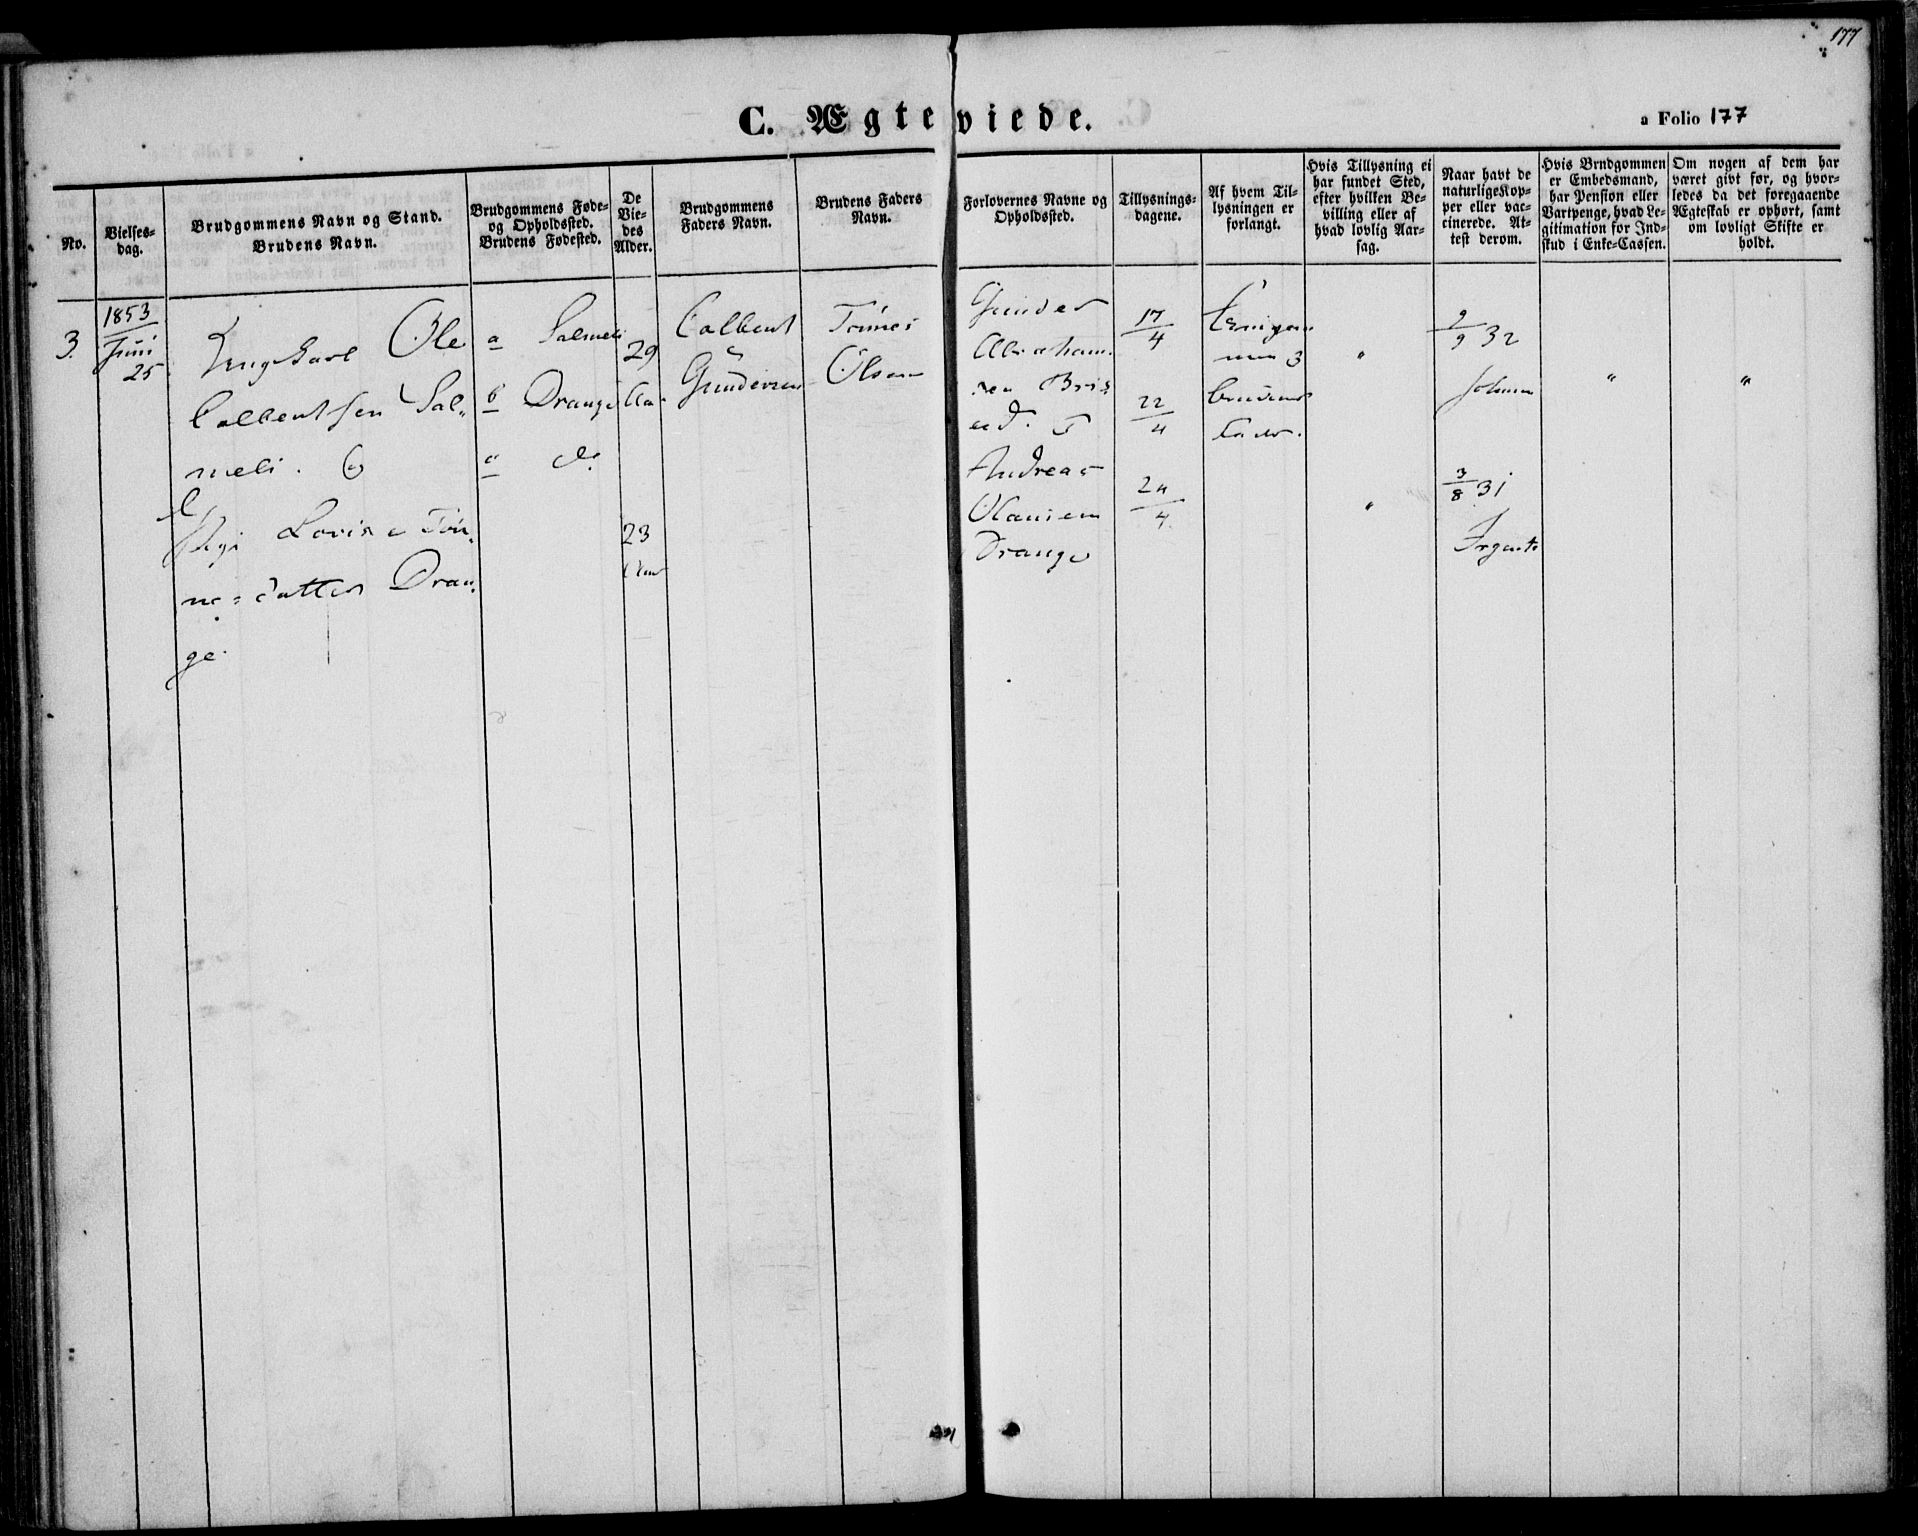 177
C. Ægteviede.
a Folio 177
No.
Vielses-
dag.
Brudgommens Navn og Stand.
Brudens Navn.
Brudgommens Føde-
og Opholdssted.
Brudens Fødested.
De
Vie-
des
Alder.
Brudgommens
Faders Navn.
Brudens Faders
Navn.
Forlovernes Navne og
Opholdssted.
Tillysnings-
dagene.
Af hvem Til-
lysningen er
forlangt.
Hvis Tillysning ei
har fundet Sted,
efter hvilken Be-
villing eller af
hvad lovlig Aar-
sag.
Naar havt de
naturlige Kop-
per eller vac-
cinerede. At-
test derom.
Hvis Brudgommen
er Embedsmand,
har Pension eller
Vartpenge, hvad Le-
gitimation for Ind-
skud i Enke-Cassen.
Om nogen af dem har
været givt før, og hvor-
ledes da det foregaaende
Ægteskab er ophørt, samt
om lovligt Skifte er
holdt.
3.
1853
Juni
25
Ungkarl Ole
Colbentsen Sal-
meli. Og
Pige Lovise Tön-
nesdatter Dran-
ge.
a Salmeli
b Drange
a do
29
Aar
23
Aar
Colbent
Gundersen
Tönnes
Olsen
Gunder
Abraham-
sen
Andreas
Olausen
Drange
17/4
22/4
24/4
Brudens
Fader.
"
"
9/9 32
Johnsen
3/8 31
"
"